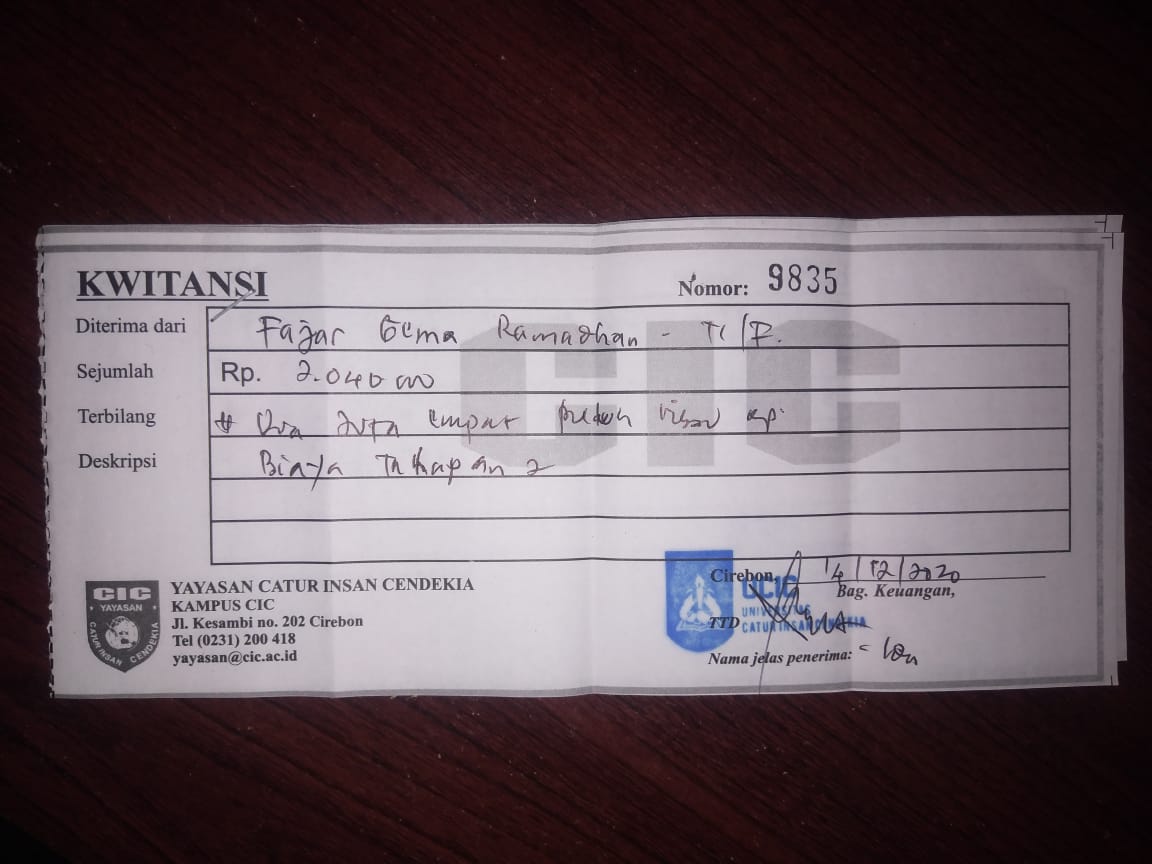 KWITANSI
Nomor: 9835
Diterima dari Fajar Gema Ramadhan - TI/P.
Sejumlah Rp. 2.040 000
Terbilang # Dua Juta empat puluh ribu rp.
Deskripsi Biaya Tahapan 2
CIC
CIC
YAYASAN
CATUR INSAN CENDEKIA
YAYASAN CATUR INSAN CENDEKIA
KAMPUS CIC
Jl. Kesambi no. 202 Cirebon
Tel (0231) 200 418
yayasan@cic.ac.id
Cirebon, 14/12/2020
Bag. Keuangan,
UCIC
UNIVERSITAS
CATUR INSAN CENDEKIA
TTD
Nama jelas penerima: